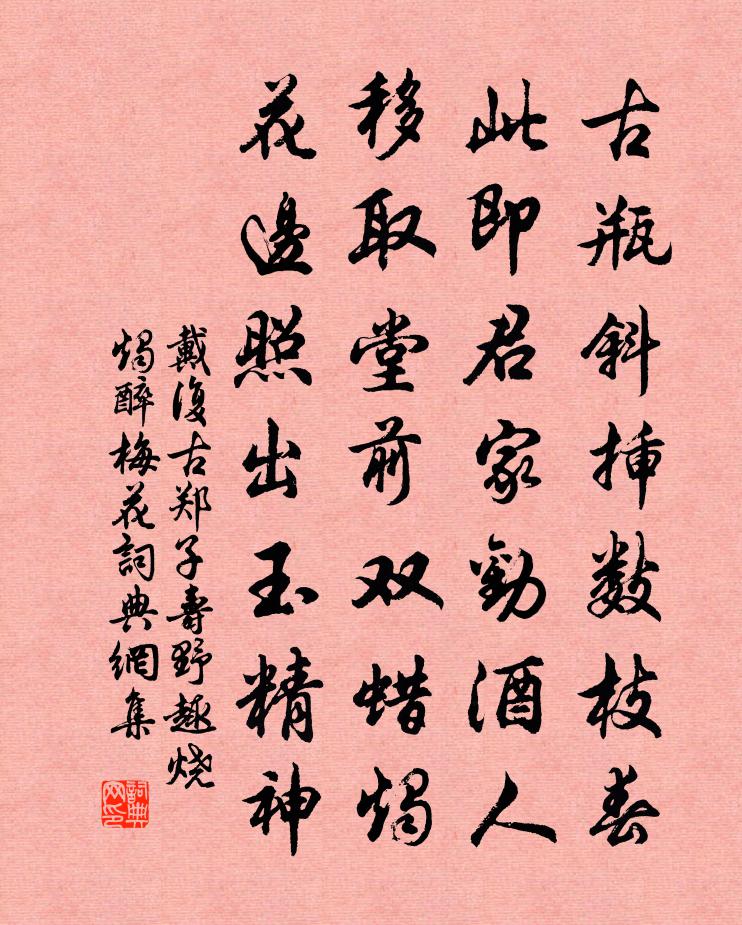 古瓶斜插数枝春
此即君家勸酒人
移取堂前双蜡燭
花邊照出玉精神
戴復古郑子壽野趣烧
燭醉梅花詞典網集
詞典网印